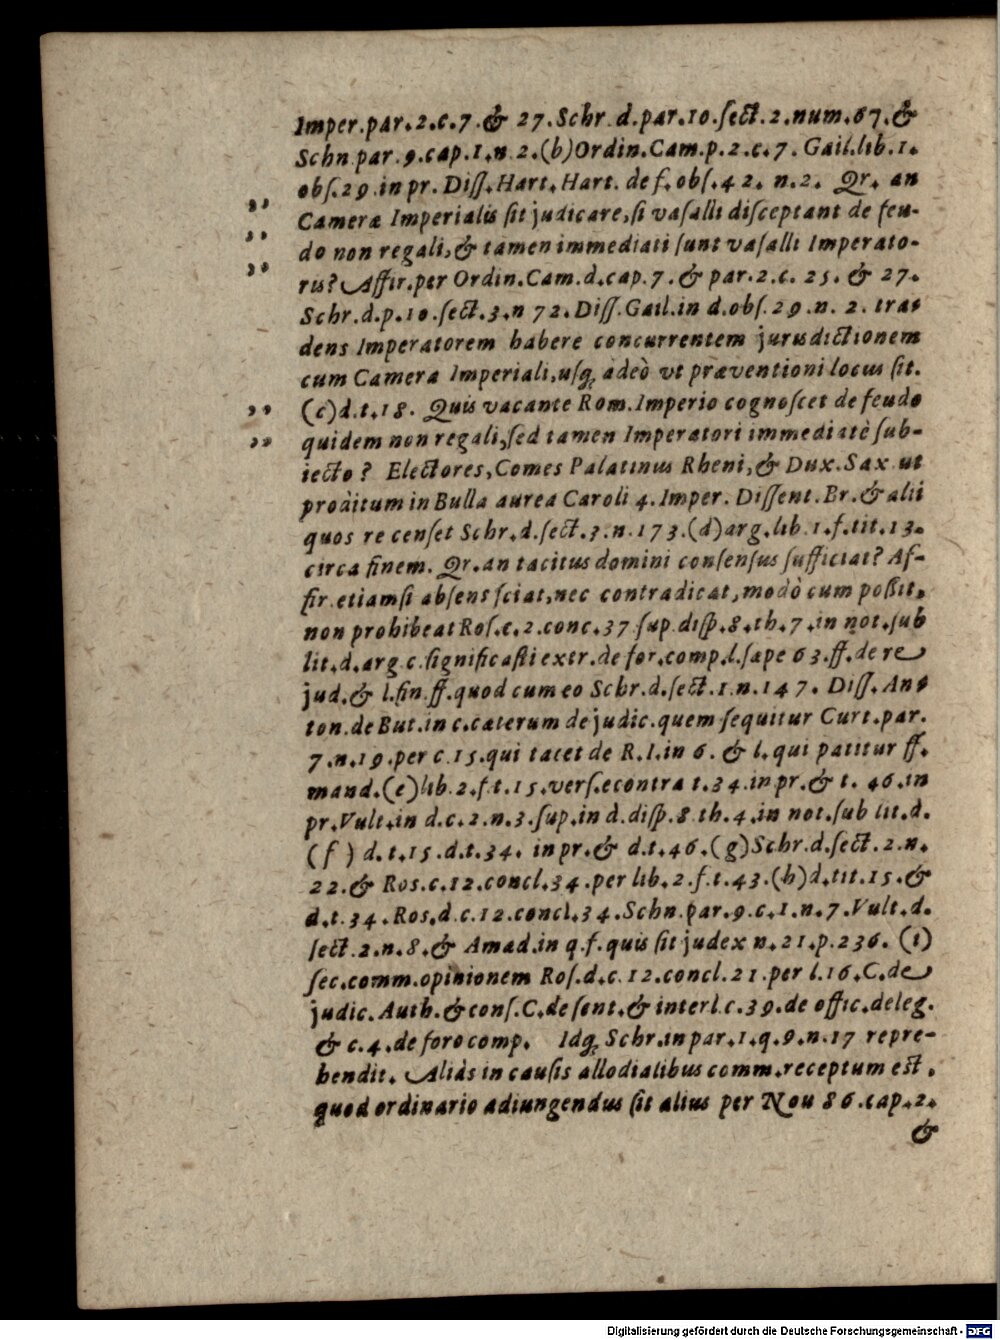 Imper.par.2.c.7.& 27.Schr.d.par.10.ſect.2.num.67.&
Schn.par.9.cap.1.n.2.(b)Ordin.Cam.p.2.c.7. Gail.lib.1.
obſ.29.in pr. Diſſ.Hart.Hart. de f.obſ.42. n.2. Qr. an
Cameræ Imperialis ſit judicare,ſi vaſalli diſceptant de feu-
do non regali,& tamen immediati ſunt vaſalli Imperato-
ris? Affir.per Ordin.Cam.d.cap.7.& par.2.c. 25. & 27.
Schr.d.p.10.ſect.3.n 72.Diſſ.Gail.in d.obſ.29.n. 2. tra-
dens Imperatorem habere concurrentem jurisdictionem
cum Camera Imperiali,uſq; adeò vt præventioni locus ſit.
(c)d.t.18. Quis vacante Rom.Imperio cognoſcet de feudo
quidem non regali,ſed tamen Imperatori immediatè ſub-
iecto? Electores,Comes Palatinus Rheni,& Dux.Sax.ut
proditum in Bulla aurea Caroli 4.Imper. Diſſent.Br.& alii
quos recenſet Schr.d.ſect.3.n.173.(d)arg.lib.1.f.tit.13.
circa finem. Qr.an tacitus domini conſenſus ſufficiat? Af-
fir.etiamſi abſens ſciat,nec contradicat,modò cum poßit,
non prohibeat Roſ.c.2.conc.37.ſup.diſp.8.th.7.in not.ſub
lit.d.arg.c.ſignificaſti extr.de for.comp.l.ſape 63.ff.de re
jud.& l.fin.ff.quod cum eo Schr.d.ſect.1.n.147. Diſſ.An-
ton.de But.in c.cæterum de judic.quem ſequitur Curt.par.
7.n.19.per c.15.qui tacet de R.I.in 6. & l.qui patitur ff.
mand.(e)lib.2.f.t.15.verſ.econtra t.34.in pr.& t. 46.in
pr.Vult.in d.c.2.n.3.ſup.in d.diſp.8 th.4.in not.ſub lit.d.
(f) d.t.15.d.t.34. in pr.& d.t.46.(g)Schr.d.ſect.2.n.
22.& Ros.c.12.concl.34.per lib.2.f.t.43.(h)d.tit.15.&
d.t.34.Ros.d.c.12.concl.34.Schn.par.9.c.1.n.7.Vult.d.
ſect.2.n.8.& Amad.in q.f.quis ſit judex n.21.p.236. (i)
ſec.comm.opinionem Roſ.d.c.12.concl.21.per l.16.C.de
judic.Auth.& conſ.C.de ſent.& interl.c.39.de offic.deleg.
& c.4.de foro comp. Idq; Schr.in par.1.q.9.n.17 repre-
hendit. Aliàs in cauſis allodialibus comm.receptum eſt,
quod ordinario adiungendus ſit alius per Nou 86.cap.2.
&
Digitalisierung gefördert durch die Deutsche Forschungsgemeinschaft - DFG